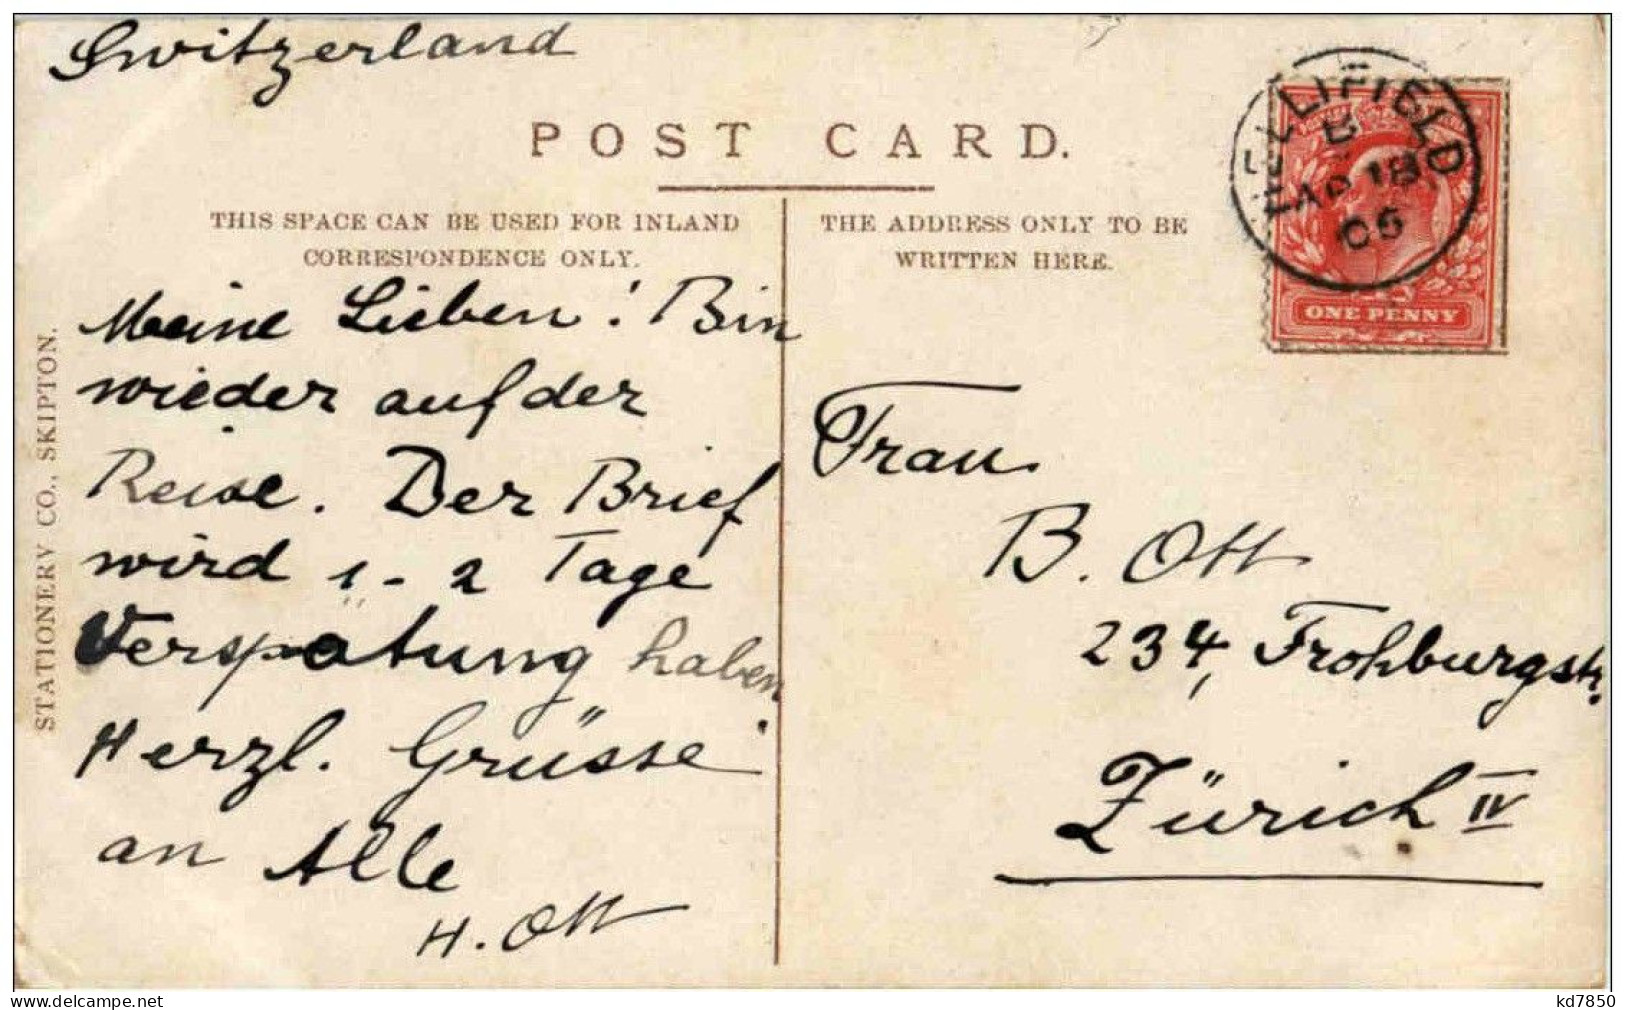 Switzerland
POST CARD.
THIS SPACE CAN BE USED FOR INLAND
CORRESPONDENCE ONLY.
THE ADDRESS ONLY TO BE
WRITTEN HERE.
HELLIFIELD
AP 18
06
ONE PENNY
STATIONERY CO., SKIPTON.
Meine Lieben! Bin
wieder auf der
Reise. Der Brief
wird 1-2 Tage
Verspätung haben.
Herzl. Grüsse
an Alle
H. Ott
Frau
B. Ott
234, Frohburgstr.
Zürich IV
kd7850